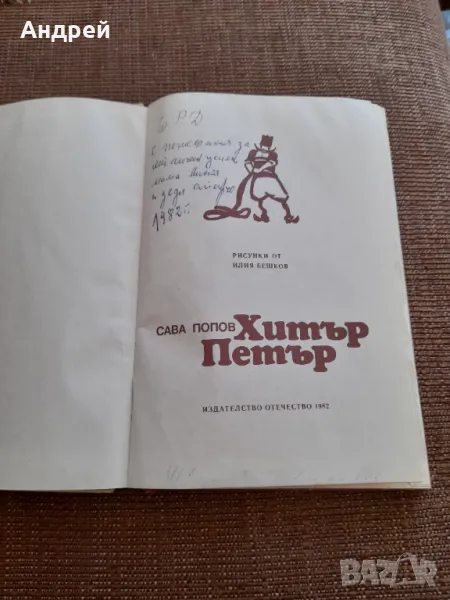 Андрей
Ч Р Д
с пожелания за
леля
и дядо
1982 г.
РИСУНКИ ОТ
ИЛИЯ БЕШКОВ
САВА ПОПОВ Хитър
Петър
ИЗДАТЕЛСТВО ОТЕЧЕСТВО 1982
BAZAR